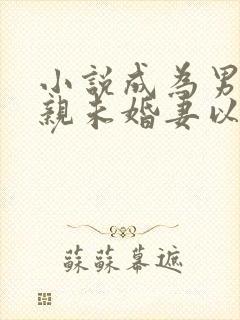 小說成為男
親未婚妻以
蘇蘇幕遮